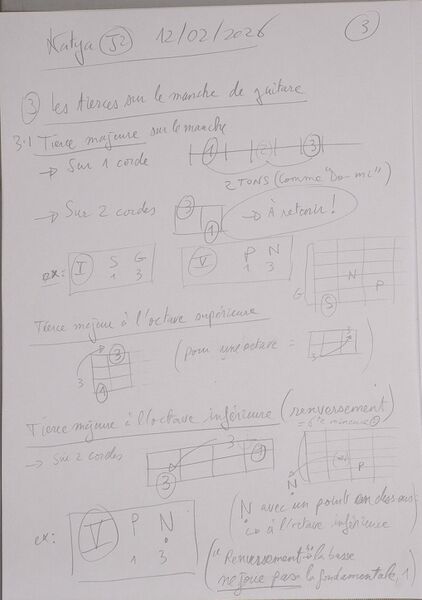 Katya J2 12/02/2026 3
3 Les tierces sur le manche de guitare
3.1 Tierce majeure sur le manche
→ Sur 1 corde 1 2 3
2 TONS (comme "Do-mi")
→ Sur 2 cordes 3 1 → À retenir !
ex: I S G V P N
1 3 1 3
N
P
G S
Tierce majeure à l'octave supérieure
3 3 1 (pour une octave = 3 3
Tierce majeure à l'octave inférieure (renversement)
→ Sur 2 cordes 3 3 1 N P
ex: V P N
1 3
(N avec un point en dessous
à l'octave inférieure
("Renversement" la basse
ne joue pas la fondamentale, 1)